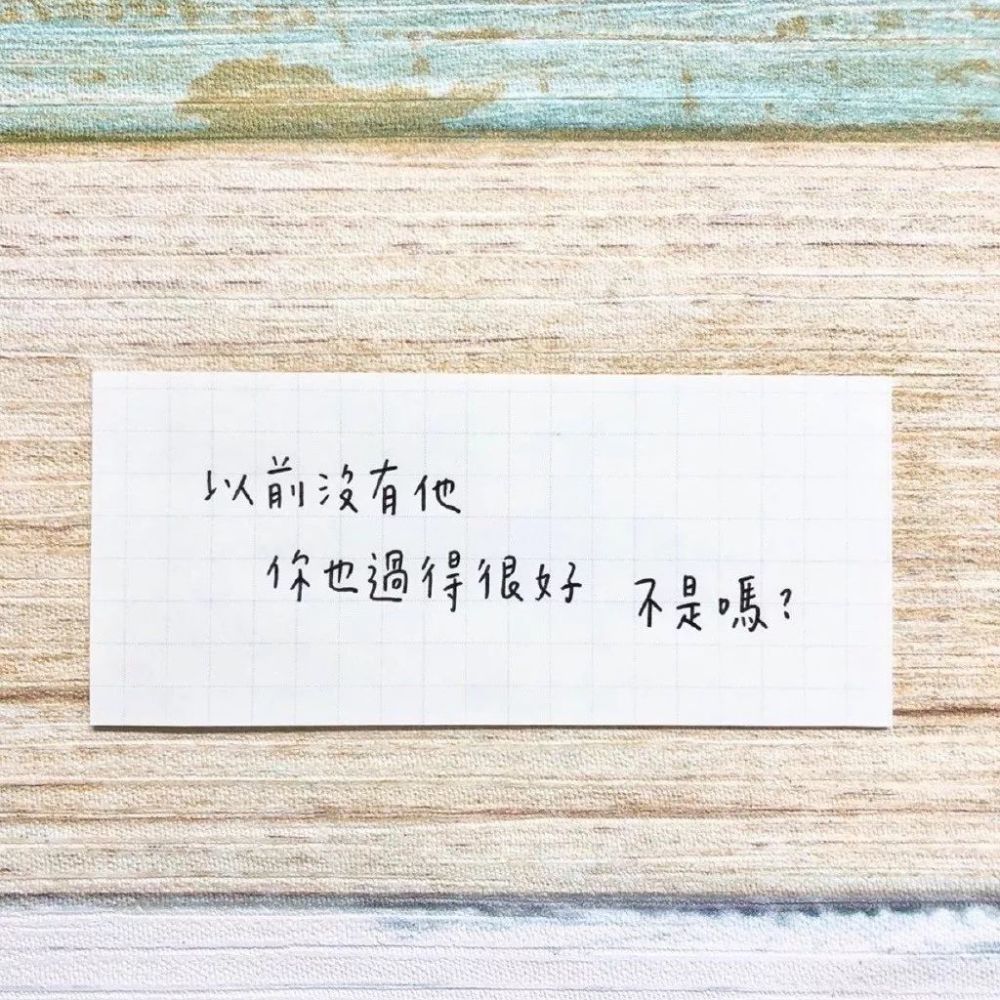 以前沒有他
你也過得很好 不是嗎?